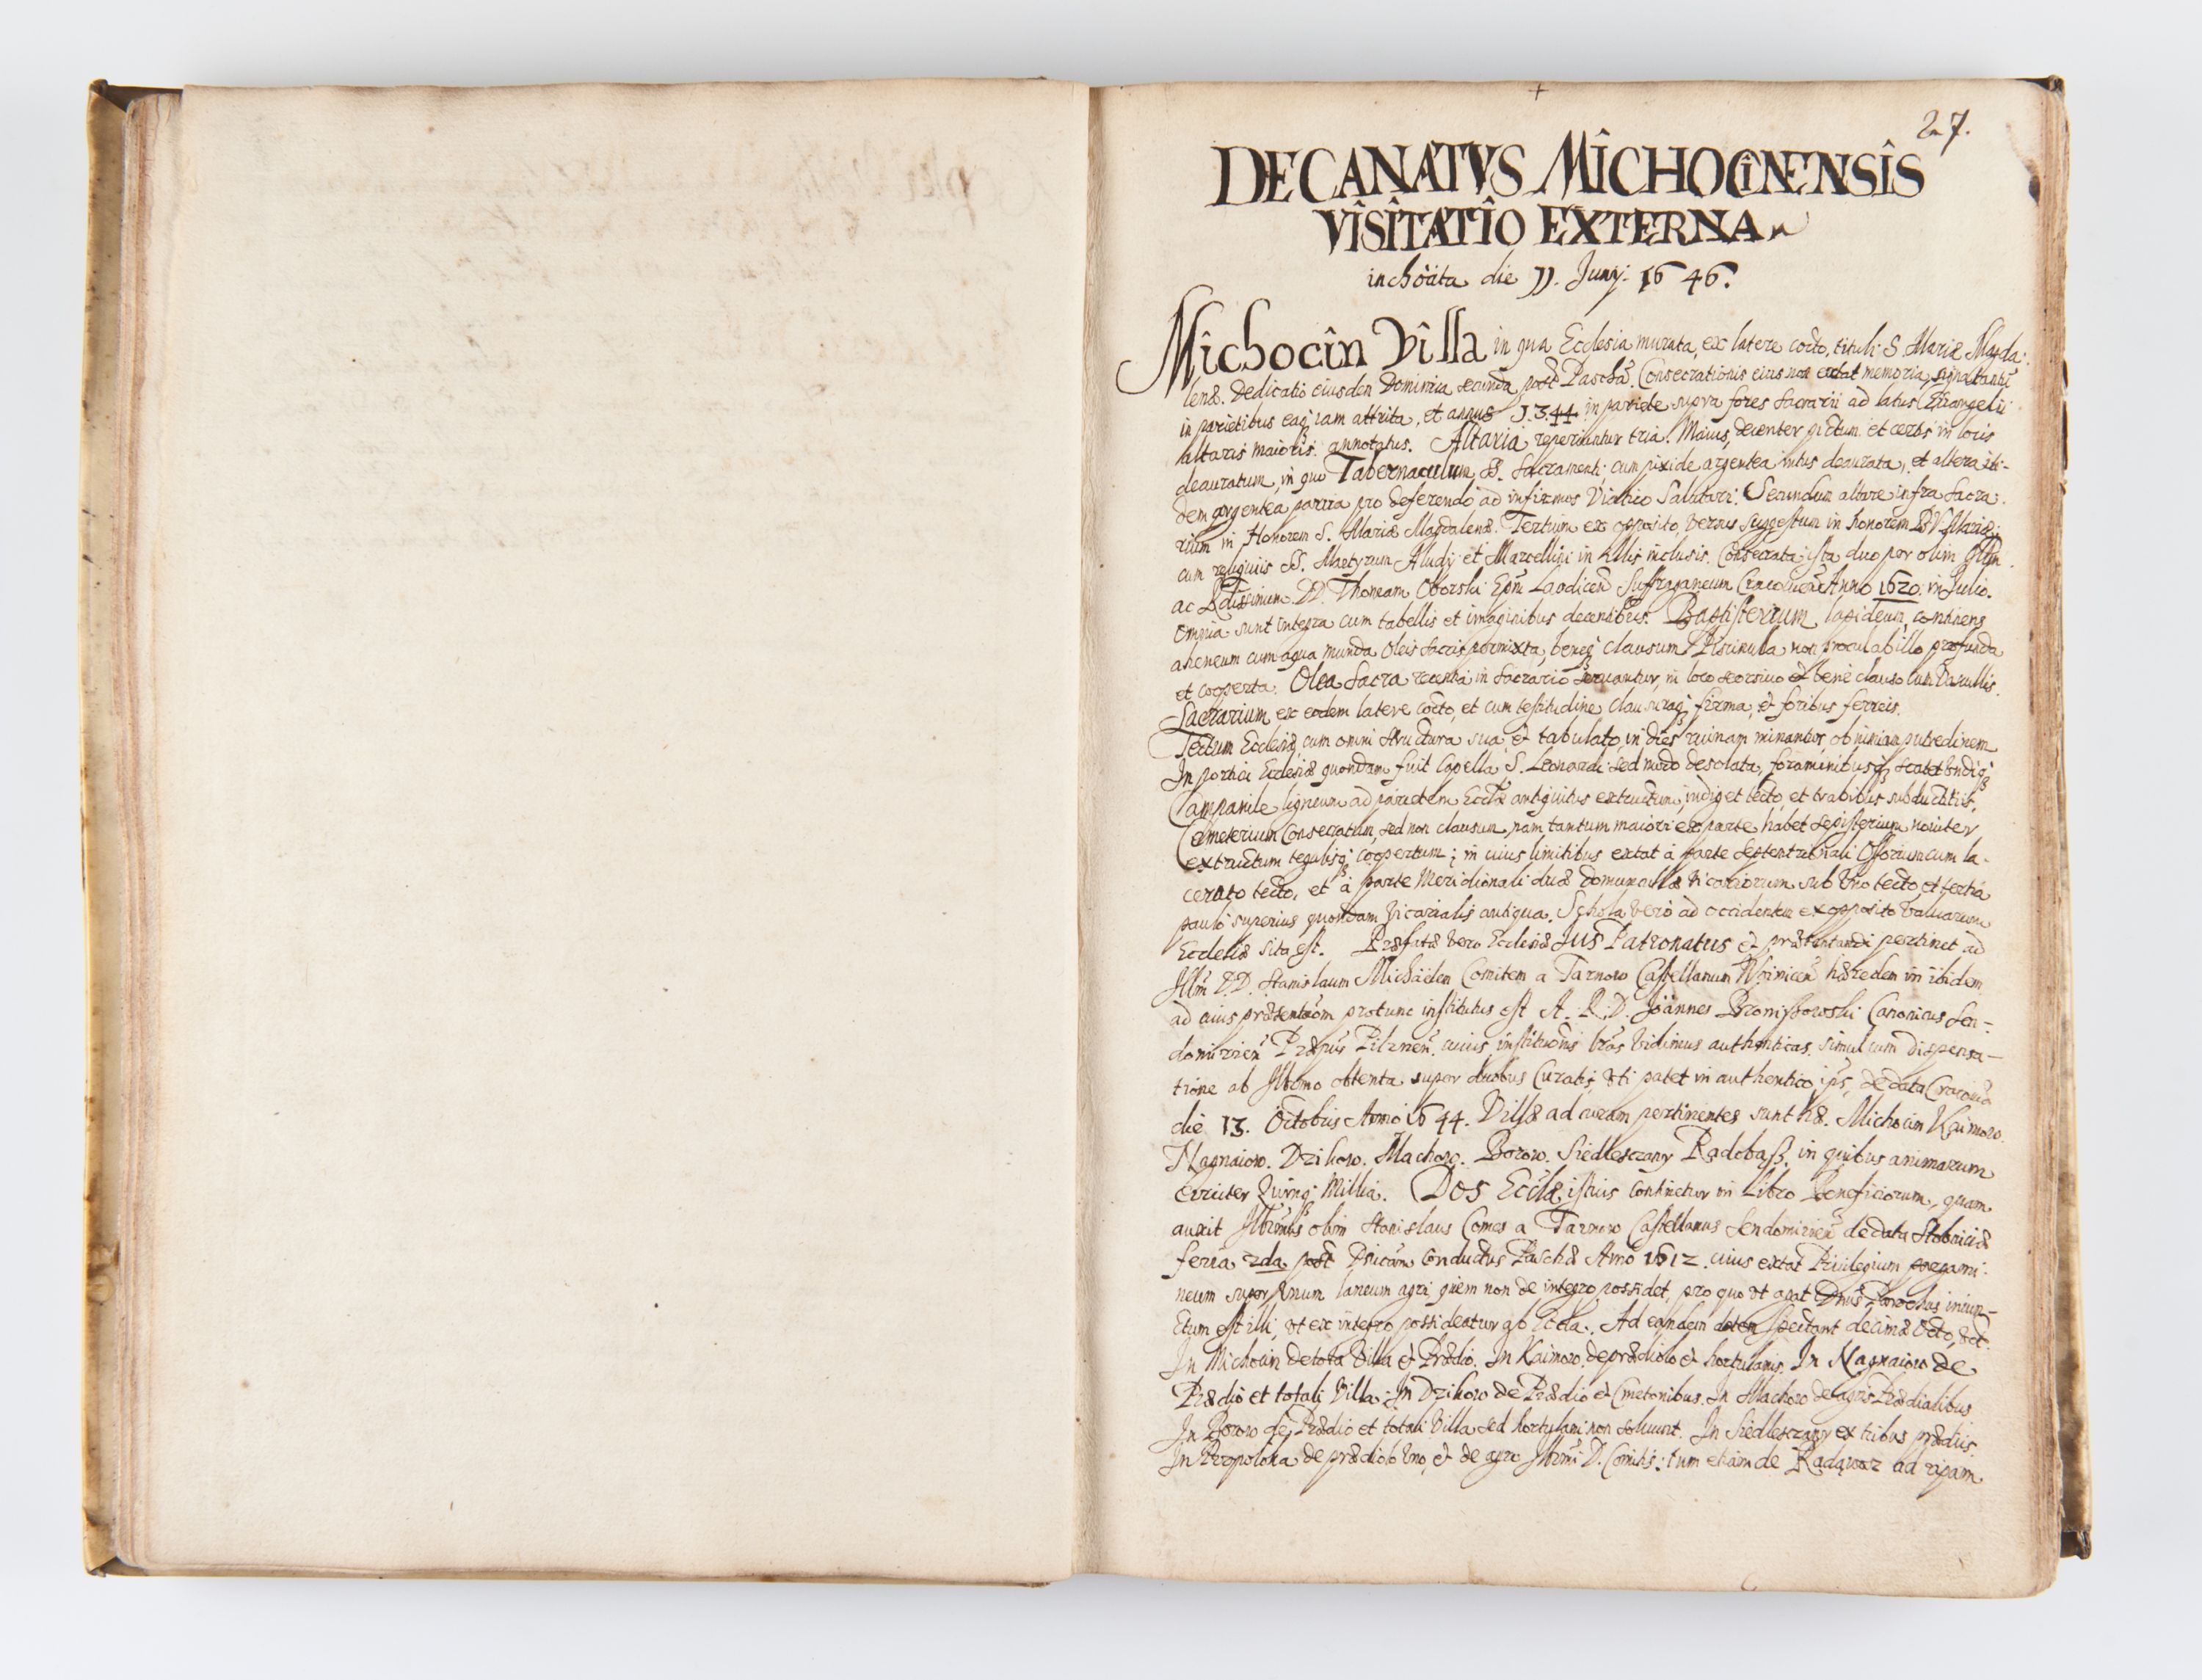 27.
DECANATVS MICHOCINENSIS
VISITATIO EXTERNA
inchoata die 11. Junij. 1646.
Michocin Villa in qua Ecclesia murata, ex latere cocto, tituli S. Mariæ Magda:
lenæ. Dedicatio eiusdem Dominica secunda post Pascha. Consecrationis eius non extat memoria, signa tantũ
in parietibus eaq; iam attrita, et annus 1344. in pariete supra fores Sacrarii ad latus Euangelii
altaris maioris annotatus. Altaria reperiuntur tria. Maius, decenter pictum et certis in locis
deauratum, in quo Tabernaculum SS. Sacramenti, cum pixide argentea intus deaurata, et altera iti-
dem argentea parva pro deferendo ad infirmos Viatico Salutari. Secundum altare infra Sacra:
rium in Honorem S. Mariæ Magdalenæ. Tertium ex opposito, versus suggestum in honorem B V. Mariæ;
cum reliquiis SS. Martyrum Aludij et Marcellini in illis inclusis. Consecrata ista duo per olim Illm̃
ac Rd̃issimum DD. Thomam Oborski Epũ Laodiceñ Suffraganeum Cracovieñ Anno 1620. in Julio.
Omnia sunt integra cum tabellis et imaginibus decentibus. Baptisterium lapideum, continens
aheneum cum aqua munda Oleis sacris permixta, beneq; clausum. Piscinula non procul ab illo profunda
et cooperta. Olea Sacra recentia in Sacrario seruantur, in loco seorsiuo et bene clauso cum Vasculis.
Sacrarium ex eodem latere cocto, et cum testudine, clausuraq; firma, et foribus ferreis.
Tectum Ecclesiæ, cum omni structura sua, et tabulato, in dies ruinam minantur, ob nimiam putredinem
In porticu Ecclesiæ quondam fuit Capella S. Leonardi sed modo desolata, foraminibusq; scatet Vndiq;
Campanile ligneum ad parietem Ecclæ antiquitus extructum, indiget tecto, et trabibus subductitiis.
Cemeterium Consecratum, sed non clausum, nam tantum maiori ex parte habet sepisterium noviter
extructum tegulisq; coopertum; in cuius limitibus extat à parte Septentrionali Ossorium cum la-
cerato tecto, et à parte Meridionali duæ domunculæ Vicariorum sub Vno tecto, et tertia
paulo superius quondam Vicarialis antiqua. Schola vero ad occidentem ex opposito valuarum
Ecclesiæ sita est. Præfatæ vero Ecclesiæ Jus Patronatus et præsentandi pertinet ad
Illm̃ D.D. Stanislaum Michaëlem Comitem a Tarnow Castellanum Woiniceñ hæredem in ibidem
ad cuius præsentãom protunc institutus est A. R. D. Joännes Broniszowski Canonicus Sen-
domirieñ Præpũs Pilzneñ. cuius institutiõnis lr̃as Vidimus authenticas simul cum dispensa-
tione ab Illmo obtenta super duobus Curatis, uti patet in authentico ips, de data Cracovia
die 13. Octobris Anno 1644. Villæ ad curam pertinentes sunt hæ. Michocin Kaimow.
Nagnaiow. Dzikow. Machow. Borow. Siedlesczany Radobasz. in quibus animarum
circiter Quinq; Millia. Dos Ecclæ istius continetur in Libro Beneficiorum, quam
auxit Illrimus olim Stanislaus Comes a Tarnow Castellanus Sendomirieñ de data Stobniciæ
feria 2da post Dñicam Conductus Paschæ Anno 1612. cuius extat Privilegium pergami:
neum super Vnum laneum agri quem non de integro possidet, pro quo ut agat Dñus Parochus iniun-
ctum est illi, ut ex integro possideatur ab Eccla. Ad eandem dotem spectant decimæ Octo, Vdt.
In Michocin de tota Villa et Prædio. In Kaimow. de prædiolo et hortulanis. In Nagnaiow de
Prædio et totali Villa. In Dzikow de Prædio et Cmetonibus. In Machow de agris Prædialibus
In Borow de Prædio et totali Villa sed hortulani non soluunt. In Siedlesczany ex tribus prædiis
In Przepolska de prædiolo Vno, et de agro Illrimi D. Comitis. tum etiam de Radąwaz ad ripam